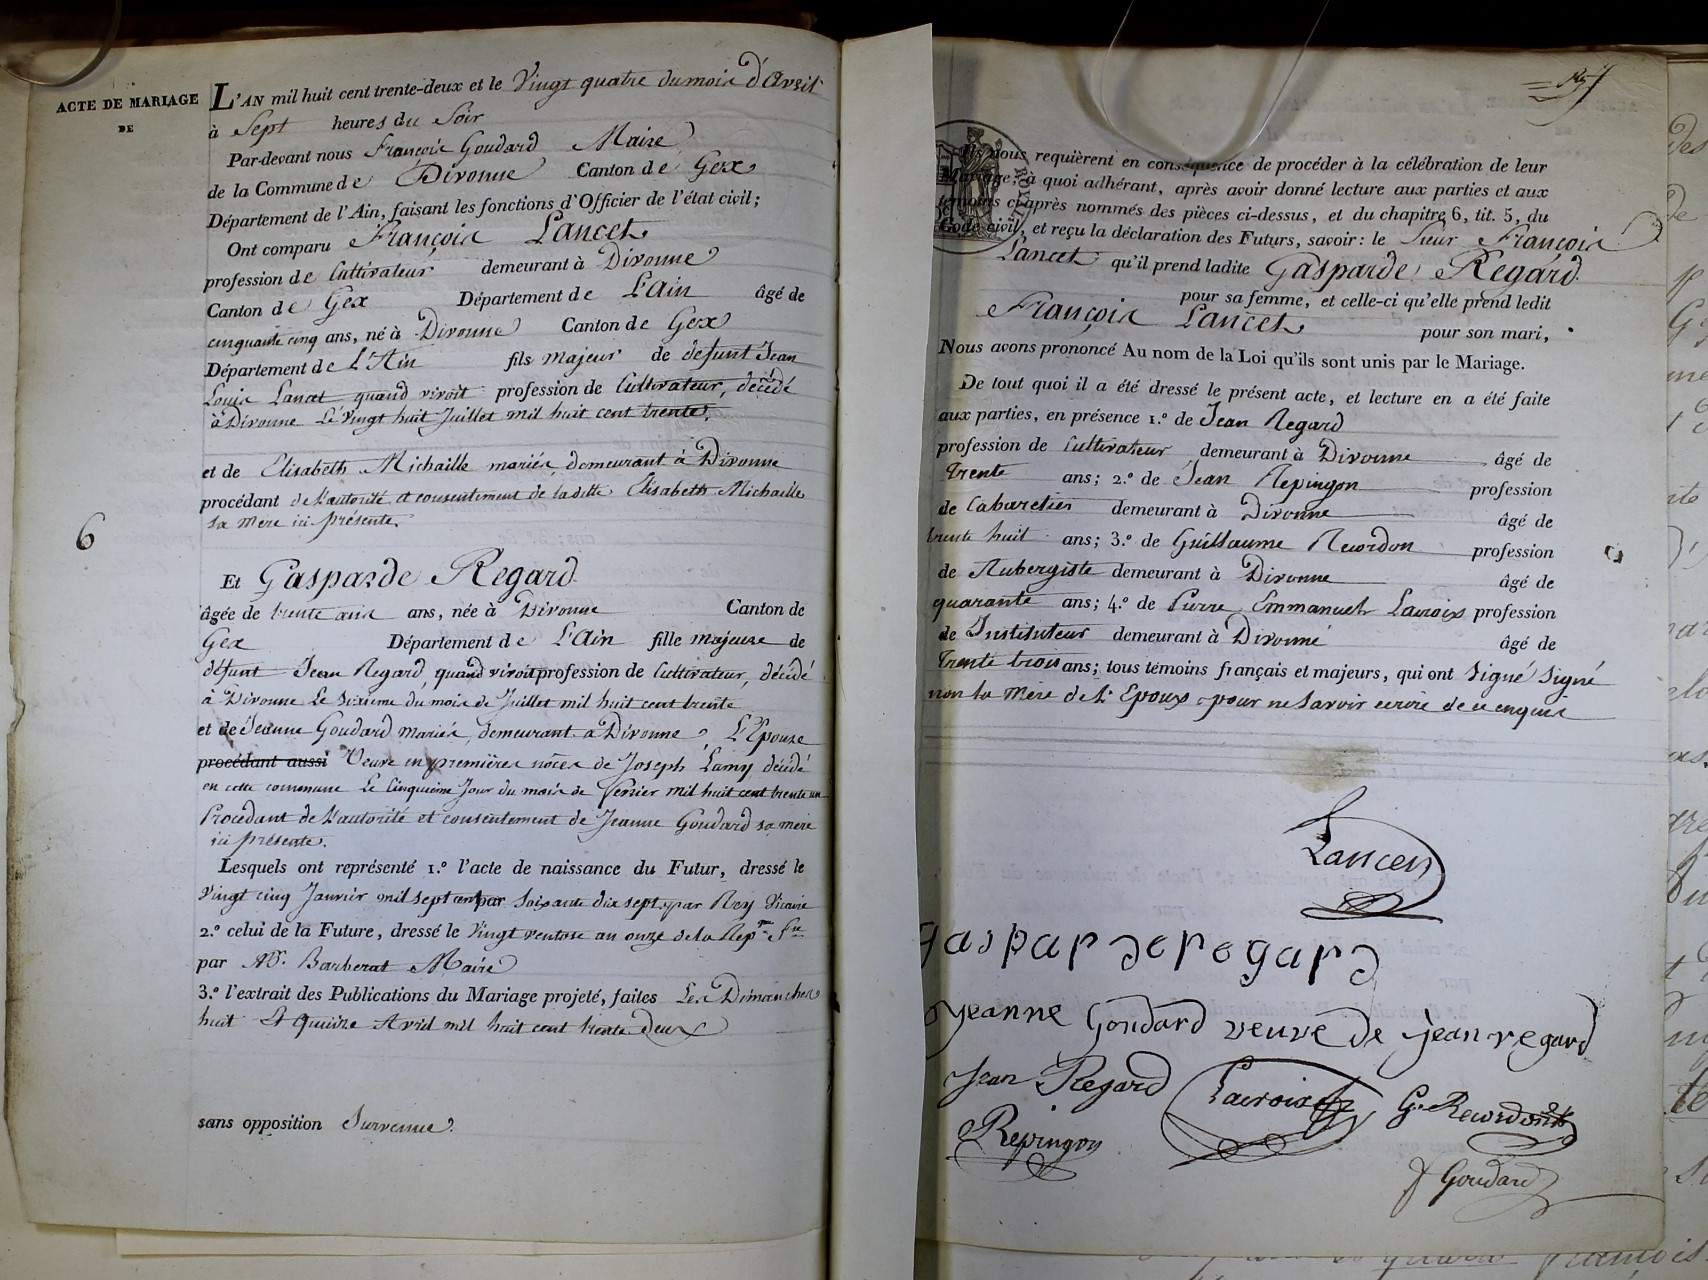 ACTE DE MARIAGE
DE
6
L'AN mil huit cent trente-deux et le Vingt quatre du mois d'Avril
à Sept heures du Soir
Par-devant nous François Goudard Maire
de la Commune de Divonne Canton de Gex
Département de l'Ain, faisant les fonctions d'Officier de l'état civil;
Ont comparu François Lancet
profession de Cultivateur demeurant à Divonne
Canton de Gex Département de L'Ain âgé de
cinquante cinq ans, né à Divonne Canton de Gex
Département de L'Ain fils majeur de defunt Jean
Louis Lancet quand vivoit profession de Cultivateur, décédé
à Divonne Le Vingt huit Juillet mil huit cent trente.
et de Elisabeth Michaille mariés, demeurant à Divonne
procédant de l'autorité et consentement de laditte Elisabeth Michaille
sa mere ici présente.
Et Gasparde Regard
âgée de trente ans, née à Divonne Canton de
Gex Département de L'Ain fille majeure de
défunt Jean Regard, quand vivoit profession de Cultivateur, décédé
à Divonne Le sixieme du mois de Juillet mil huit cent trente
et de Jeanne Goudard mariés, demeurant à Divonne, L'Epouse
procédant aussi Veuve en premières nôces de Joseph Lamy décédé
en cette commune Le Cinquième Jour du mois de fevrier mil huit cent trente un
Procedant de l'autorité et consentement de Jeanne Goudard sa mere
ici présente.
Lesquels ont représenté 1.º l'acte de naissance du Futur, dressé le
Vingt cinq Janvier mil sept cent soixante dix sept, par Rey Vicaire
2.º celui de la Future, dressé le Vingt ventose an onze de la Rep.ne f.se
par Barberat Maire
3.º l'extrait des Publications du Mariage projeté, faites Les Dimanches
huit Et Quinze Avril mil huit cent trente deux
sans opposition Survenue.
Ils nous requièrent en conséquence de procéder à la célébration de leur
Mariage; à quoi adhérant, après avoir donné lecture aux parties et aux
témoins ci-après nommés des pièces ci-dessus, et du chapitre 6, tit. 5, du
Code civil, et reçu la déclaration des Futurs, savoir: le Sieur François
Lancet qu'il prend ladite Gasparde Regard
pour sa femme, et celle-ci qu'elle prend ledit
François Lancet pour son mari,
Nous avons prononcé Au nom de la Loi qu'ils sont unis par le Mariage.
De tout quoi il a été dressé le présent acte, et lecture en a été faite
aux parties, en présence 1.º de Jean Regard
profession de Cultivateur demeurant à Divonne âgé de
Trente ans; 2.º de Jean Repingon profession
de Cabaretier demeurant à Divonne âgé de
trente huit ans; 3.º de Guillaume Recordon profession
de Aubergiste demeurant à Divonne âgé de
quarante ans; 4.º de Pierre Emmanuel Lacroix profession
de Instituteur demeurant à Divonne âgé de
Trente trois ans; tous témoins français et majeurs, qui ont signé signé
non la mère de L'Epoux pour ne savoir ecrire de ce enquise
Lancet
gasparde regard
jeanne Goudard veuve de jean regard
Jean Regard Lacroix G. Recordon
Repingon
f Goudard